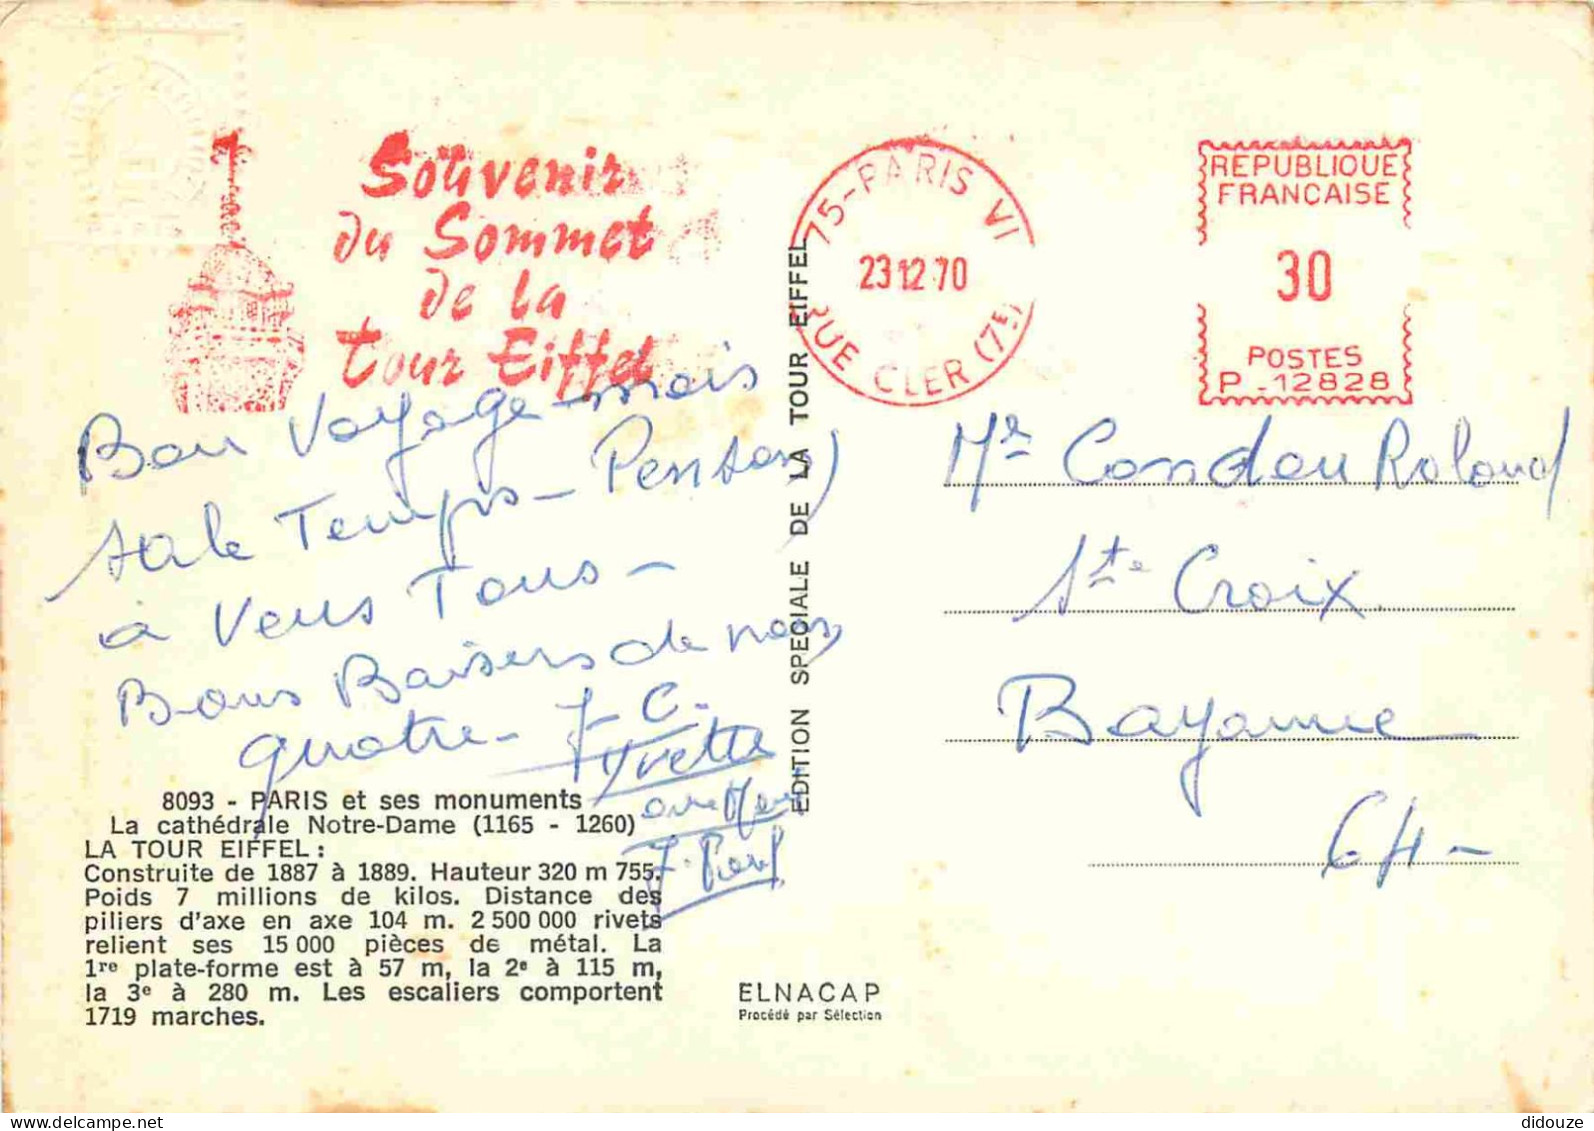 Souvenir
du Sommet
de la
tour Eiffel
75-PARIS VI
23 12 70
RUE CLER (75)
REPUBLIQUE
FRANCAISE
30
POSTES
P_12828
Bon Voyage - mais
sale Temps - Pensons
à Vous Tous -
Bons Baisers de nous
quatre - J-C.
Yvette
J. Paul
Mr Condou Roland
Ste Croix
Bayonne
64 -
EDITION SPECIALE DE LA TOUR EIFFEL
8093 - PARIS et ses monuments
La cathédrale Notre-Dame (1165 - 1260)
LA TOUR EIFFEL :
Construite de 1887 à 1889. Hauteur 320 m 755.
Poids 7 millions de kilos. Distance des
piliers d'axe en axe 104 m. 2 500 000 rivets
relient ses 15 000 pièces de métal. La
1re plate-forme est à 57 m, la 2e à 115 m,
la 3e à 280 m. Les escaliers comportent
1719 marches.
ELNACAP
Procédé par Sélection
didouze